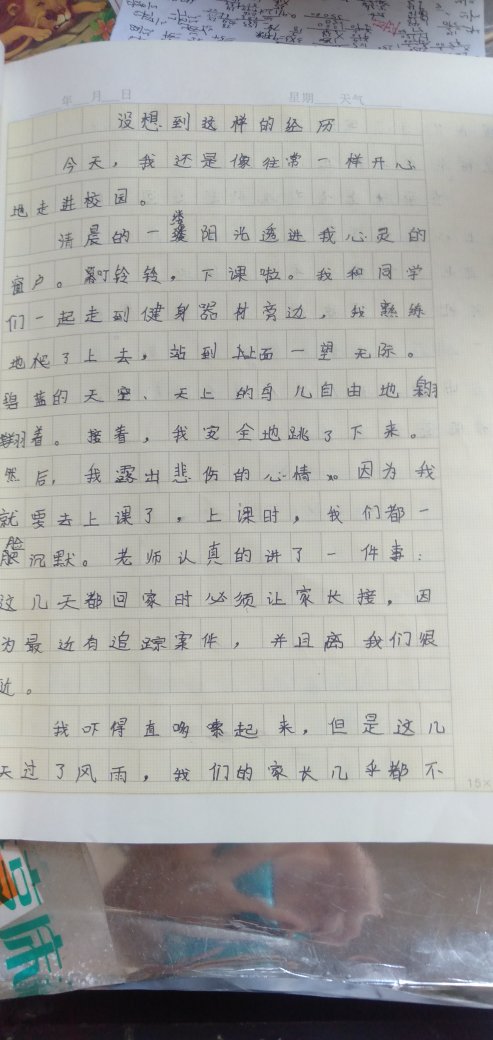 年 月 日 星期 天气
没想到这样的经历
今天，我还是像往常一样开心
地走进校园。
清晨的一缕阳光透进我心灵的
窗户。叮铃铃，下课啦。我和同学
们一起走到健身器材旁边，我熟练
地爬了上去，站到上面一望无际。
碧蓝的天空、天上的鸟儿自由地翱
翔着。接着，我安全地跳了下来。
然后，我露出悲伤的心情。因为我
就要去上课了，上课时，我们都一
脸沉默。老师认真的讲了一件事：
这几天都回家时必须让家长接，因
为最近有追踪案件，并且离我们很
近。
我吓得直哆嗦起来，但是这几
天过了风雨，我们的家长几乎都不